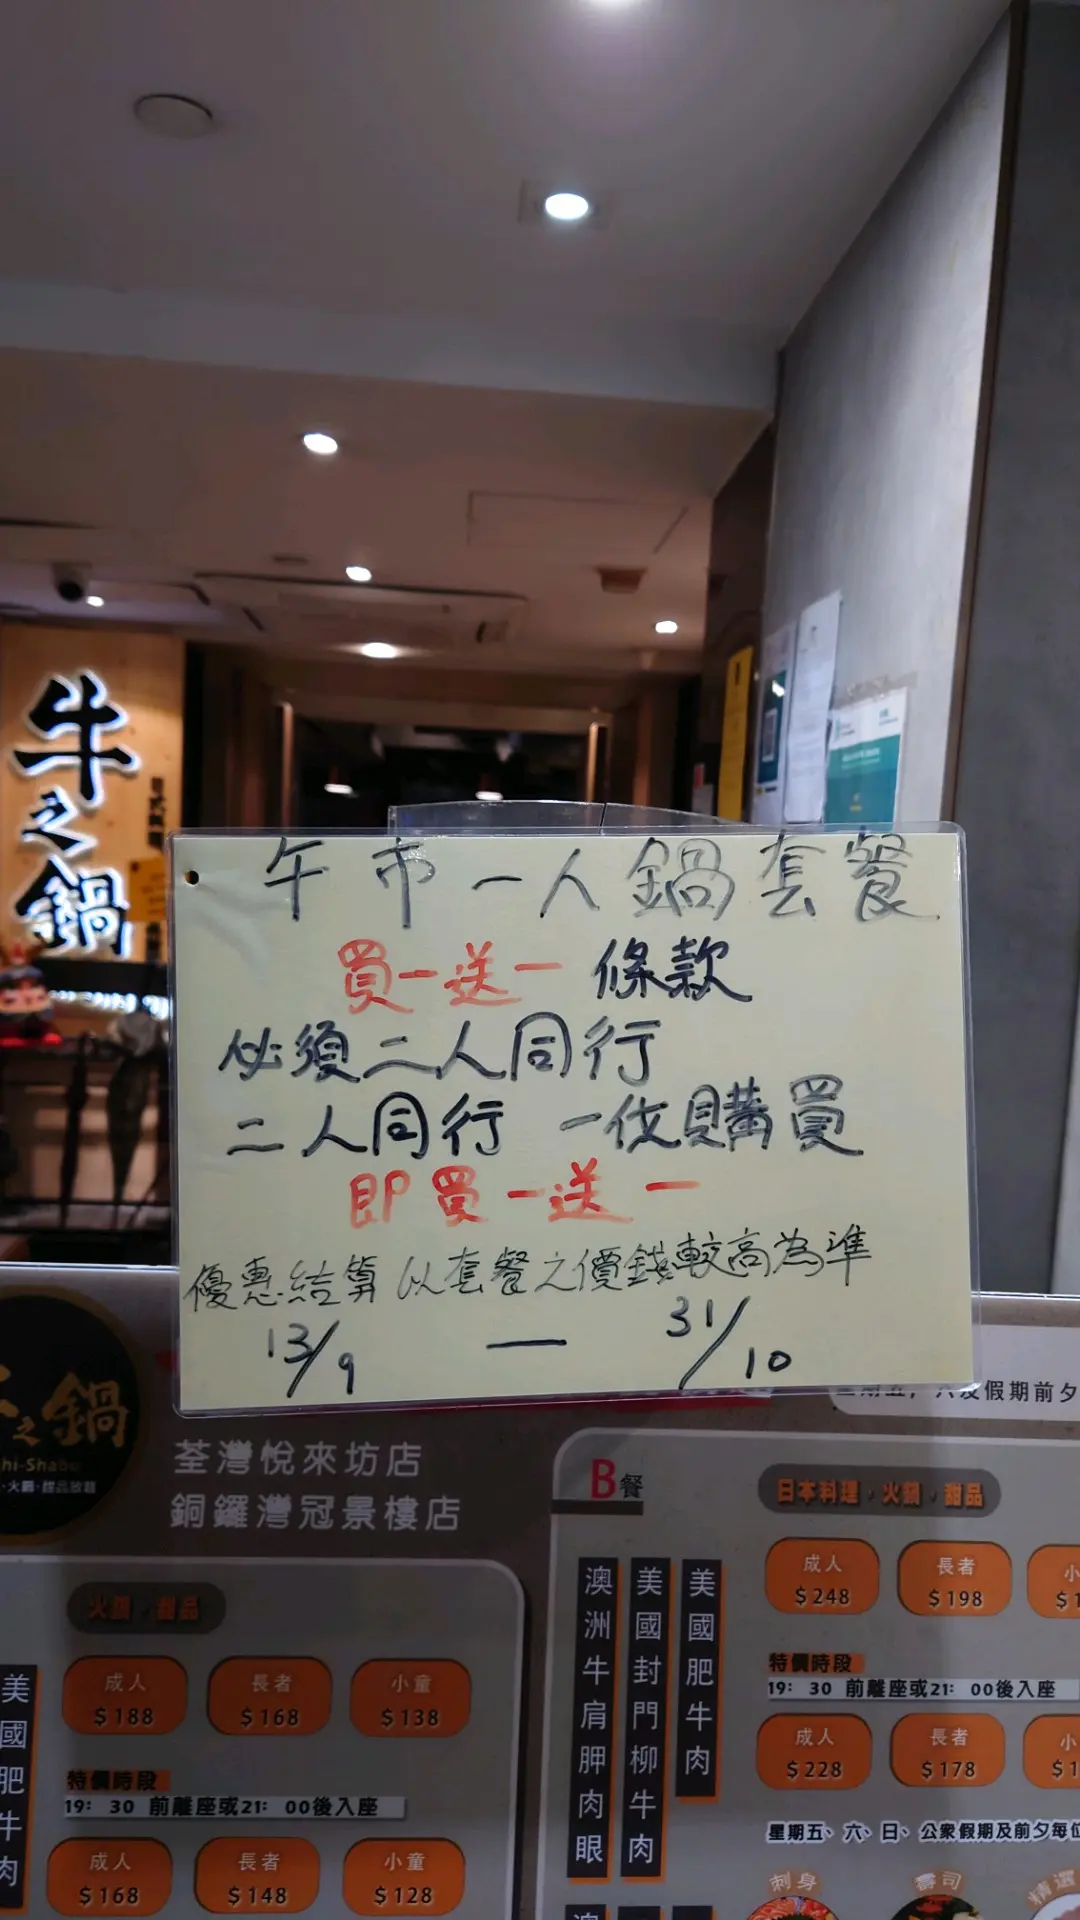 牛之鍋
午市一人鍋套餐
買一送一 條款
必須二人同行
二人同行 一份購買
即買一送一
優惠結算以套餐之價錢較高為準
13/9 — 31/10
之鍋
荃灣悅來坊店
銅鑼灣冠景樓店
火鍋・甜品
成人 $188
長者 $168
小童 $138
特價時段
19:30 前離座或21:00後入座
成人 $168
長者 $148
小童 $128
美國肥牛肉
B餐
日本料理・火鍋・甜品
成人 $248
長者 $198
特價時段
19:30 前離座或21:00後入座
成人 $228
長者 $178
星期五、六、日、公眾假期及前夕每位
刺身
壽司
精選
澳洲牛肩胛肉眼
美國封門柳牛肉
美國肥牛肉